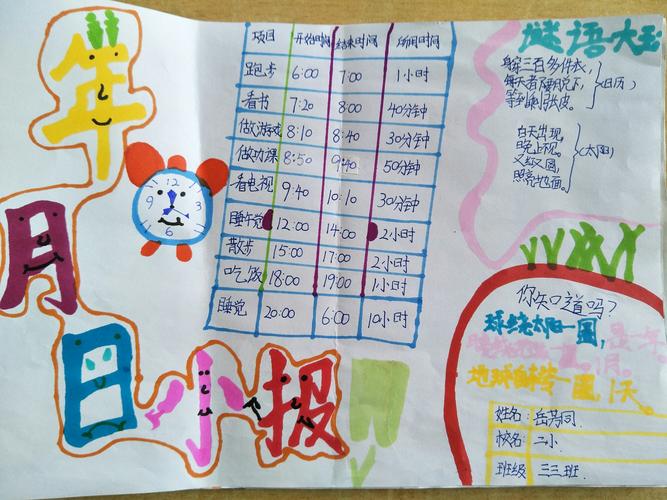 年
月
日小报
项目 开始时间 结束时间 所用时间
跑步 6:00 7:00 1小时
看书 7:20 8:00 40分钟
做游戏 8:10 8:40 30分钟
做功课 8:50 9:40 50分钟
看电视 9:40 10:10 30分钟
睡午觉 12:00 14:00 2小时
散步 15:00 17:00 2小时
吃饭 18:00 19:00 1小时
睡觉 20:00 6:00 10小时
12
3
6
9
谜语大王
身穿三百多件衣,
每天都要脱下,
等到剩张皮。
(日历)
白天出现,
晚上不见。
又红又圆,
照亮地面。
(太阳)
你知道吗?
球绕太阳一圈,是一年
月。
地球自转一圈,1天。
姓名:岳芮同
校名:二小
班级 三三班